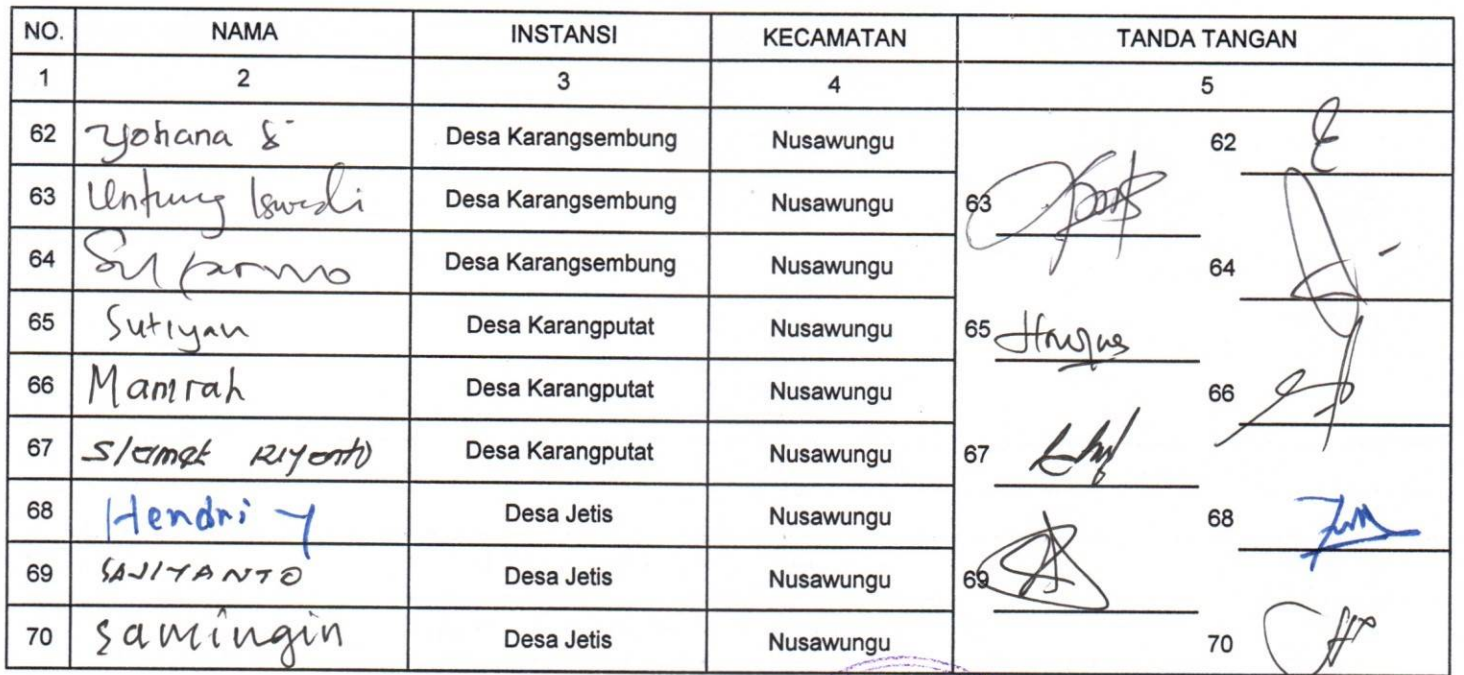 NO. NAMA INSTANSI KECAMATAN TANDA TANGAN
1 2 3 4 5
62 Yohana S Desa Karangsembung Nusawungu 62
63 Untung Iswadi Desa Karangsembung Nusawungu 63
64 Suparmo Desa Karangsembung Nusawungu 64
65 Sutiyan Desa Karangputat Nusawungu 65
66 Mamrah Desa Karangputat Nusawungu 66
67 Slamet Riyanto Desa Karangputat Nusawungu 67
68 Hendri Y Desa Jetis Nusawungu 68
69 SAJIYANTO Desa Jetis Nusawungu 69
70 Samingin Desa Jetis Nusawungu 70